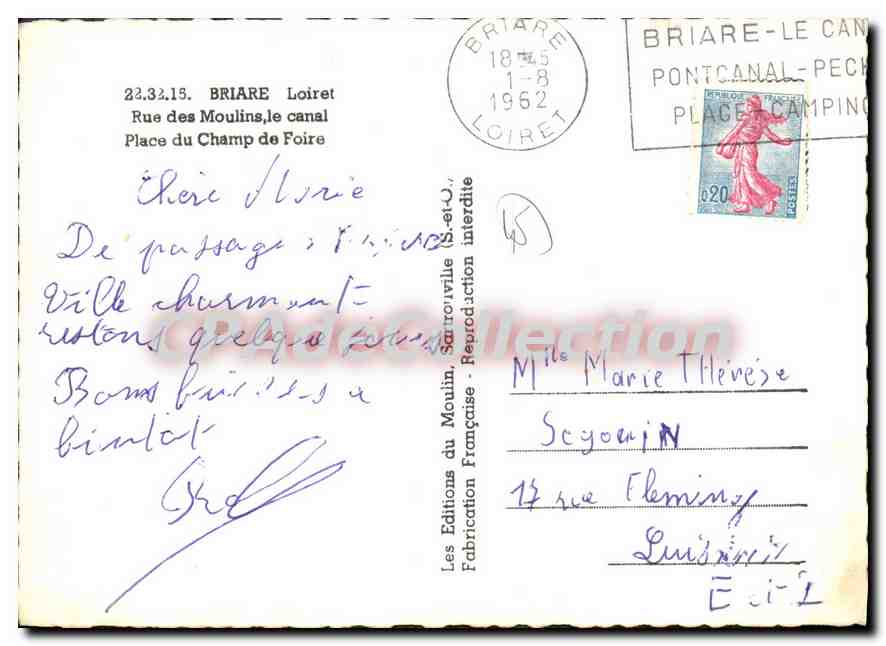 22.32.15. BRIARE Loiret
Rue des Moulins,le canal
Place du Champ de Foire
BRIARE
18 45
1-8
1962
LOIRET
BRIARE-LE CAN
PONTCANAL-PECH
PLAGE-CAMPING
REPUBLIQUE FRANÇAISE
0,20
POSTES
Chère Marie
De passage
Ville charmant
restons quelque jours
Bons
bientot
45
Les Editions du Moulin, Sartrouville (S.-et-O.,
Fabrication Française - Reproduction interdite
CPAdeCollection
Mlle Marie Thérèse
Segouin
17 rue Fleming